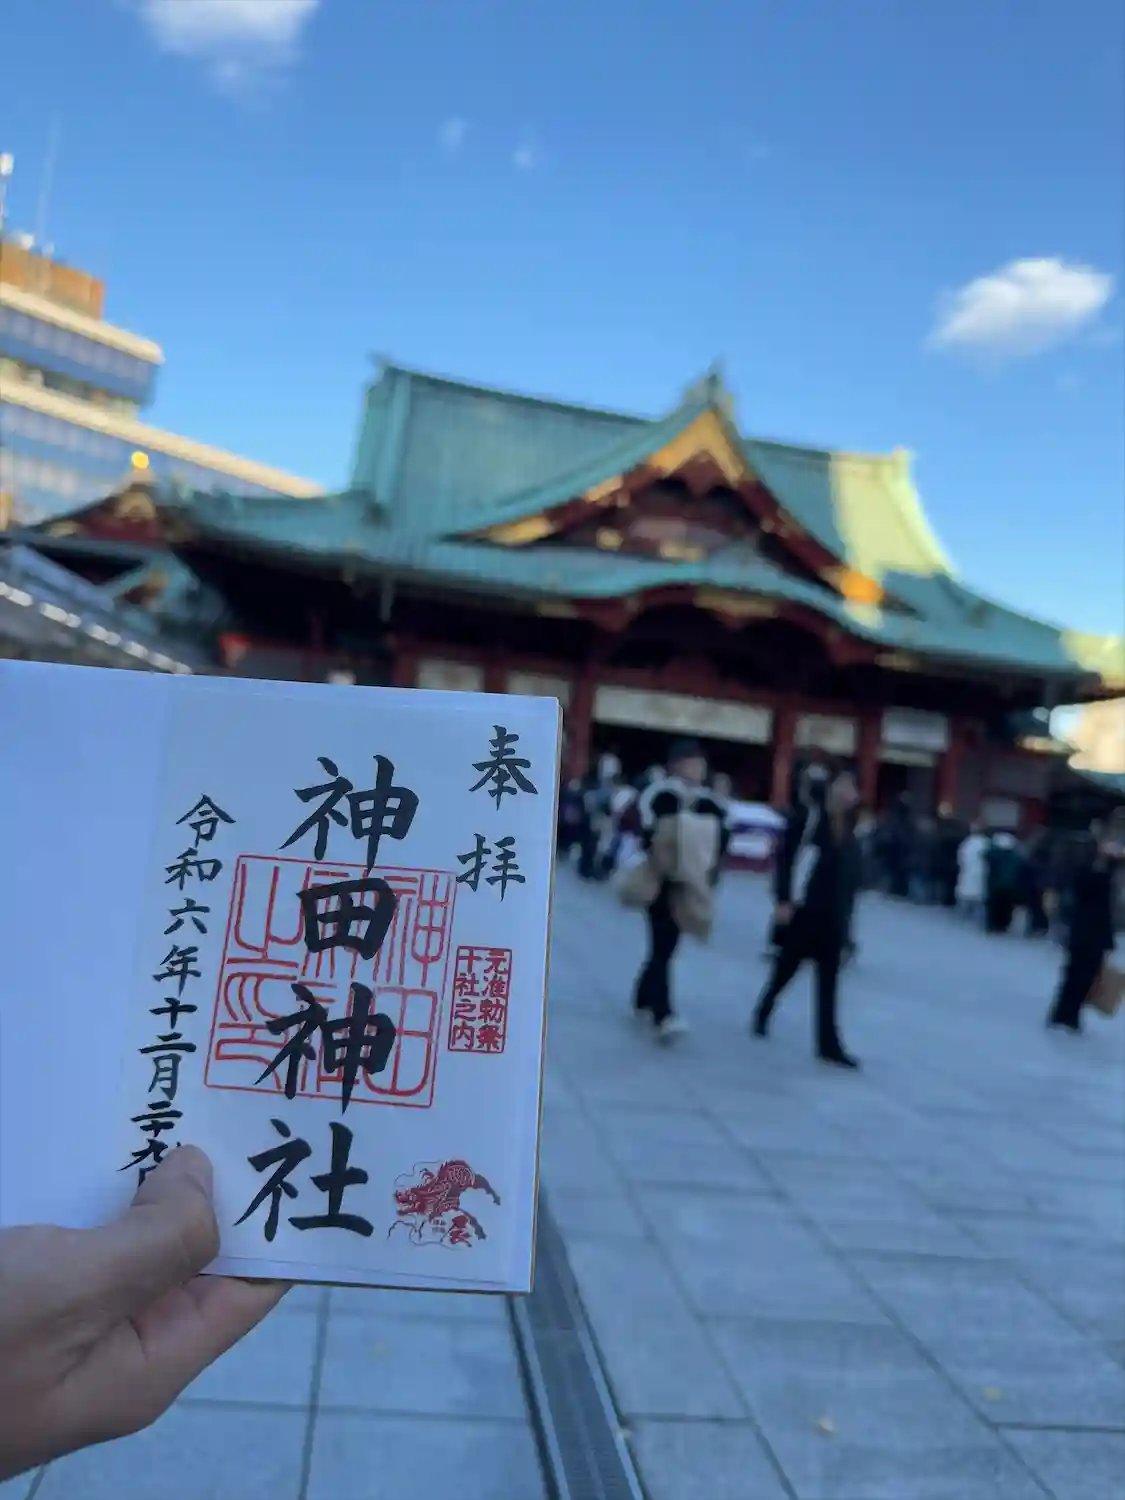 奉拝
元准勅祭
十社之内
神田神社
神田
神社
之印
辰
令和六年十二月二十九日